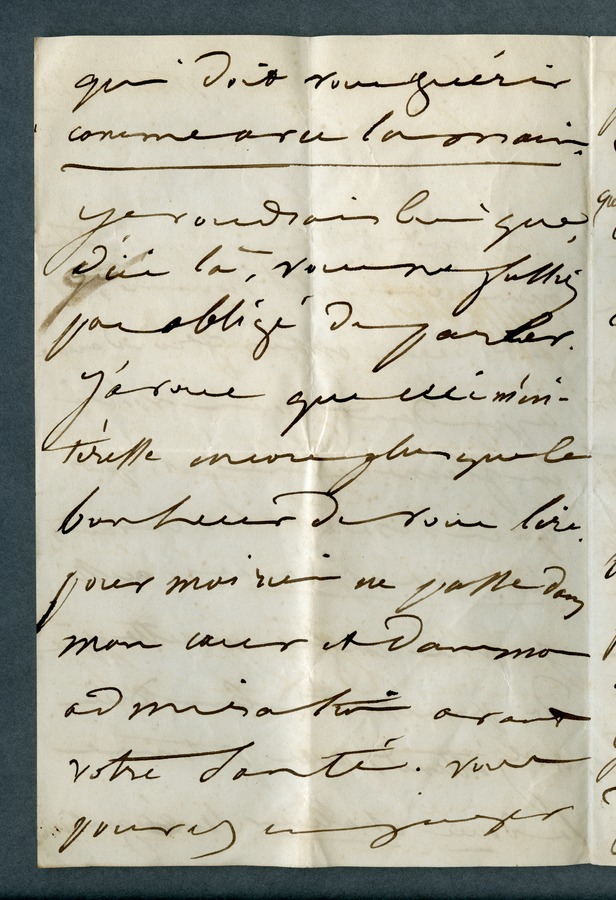 qui doit vous guérir
comme avec la main.
je voudrais bien que,
d'ici là, vous ne fussiez
pas obligé de parler.
J'avoue que ceci m'in-
téresse encore plus que le
bonheur de vous lire.
pour moi rien ne passe dans
mon cœur et dans mon
admiration avant
votre santé. vous
pourrez en juger